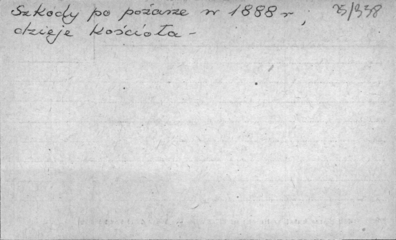 Szkody po pożarze w 1888 r,
dzieje kościoła -